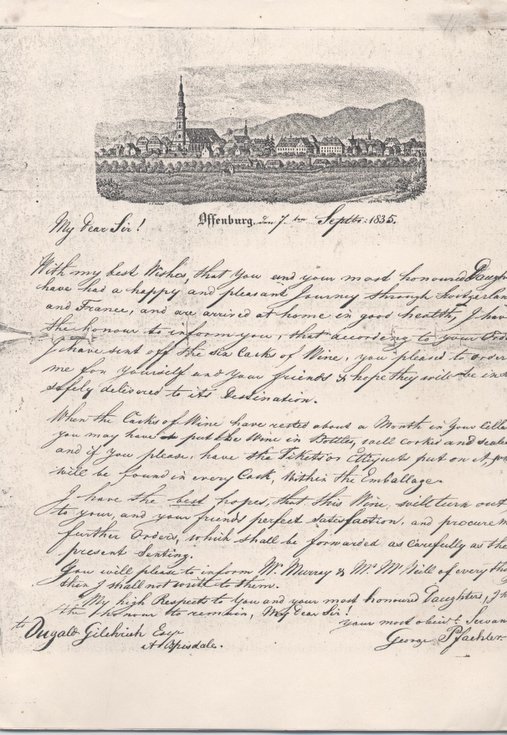 Offenburg, den 7 ten Septbr: 1835.
My Dear Sir!
With my best Wishes, that you and your most honoured Daugh
have had a happy and pleasant Journey through Switzerlan
and France, and are arrived at home in good health, I hav
the honour to inform you, that according to your Orde
I have sent off the six Casks of Wine, you pleased to order
me for yourself and your friends & hope they will be in
safely delivered to its Destination.
When the Casks of Wine have rested about a Month in Your Cella
you may have to put the Wine in Bottles, well corked and seale
and if you please, have the Tikets or Etiquets put on it,
will be found in every Cask, within the Emballage.
I have the best hopes, that this Wine, will turn out
to your, and your friends perfect Satisfaction, and procure m
further Orders, which shall be forwarded as carefully as the
present Senting.
You will please to inform Mr. Murray & Mr. Mc Neill of every th
then I shall not write to them.
My high Respects to You and your most honoured Daughters, I
the honour to remain, My Dear Sir!
your most obedt. Servan
to Dugald Gilchrist Esqre
George Pfaehler
At Ospisdale.